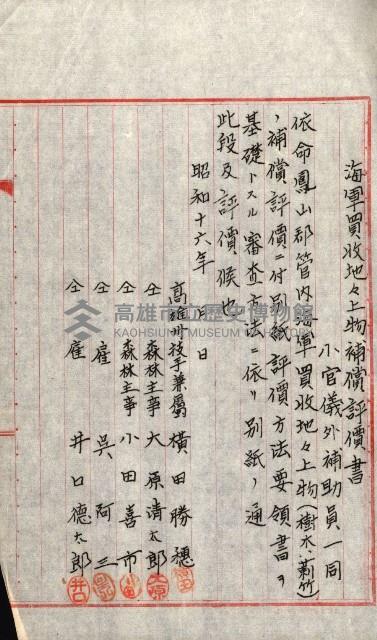 海軍買收地々上物補償評價書
小官儀外補助員一同
依命鳳山郡管內海軍買收地々上物(樹木、莿竹)
ノ補償評價ニ付別紙評價方法要領書ヲ
基礎トスル審査方法ニ依リ別紙ノ通
此段及評價候也
昭和十六年 月 日
高雄州技手兼屬 橫田勝穗
仝 森林主事 大原清太郎
仝 森林主事 小田善市
仝 雇 吳阿三
仝 雇 井口德太郎
高雄市立歷史博物館
KAOHSIUNG MUSEUM OF HISTORY